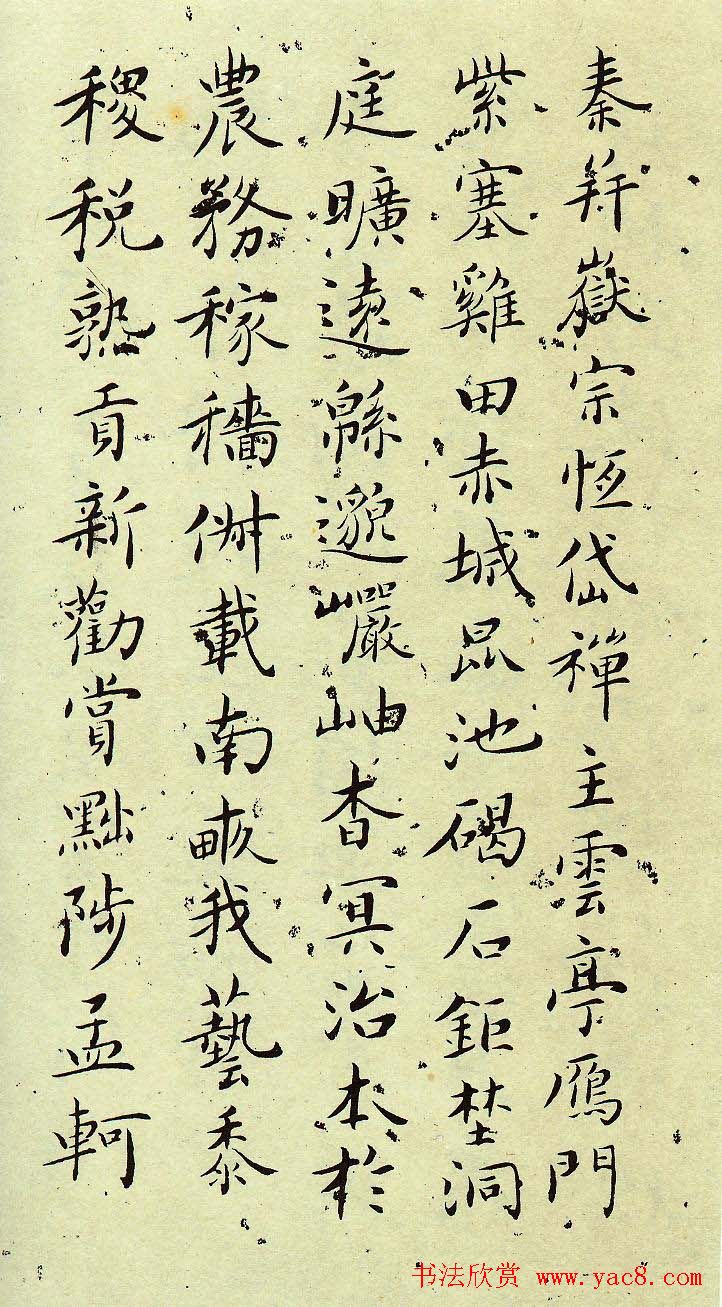 秦并嶽宗恒岱禪主雲亭鴈門
紫塞雞田赤城昆池碣石鉅埜洞
庭曠遠緜邈巗岫杳冥治本於
農務稼穡俶載南畝我藝黍
稷税熟貢新勸賞黜陟孟軻
书法欣赏 www.yac8.com